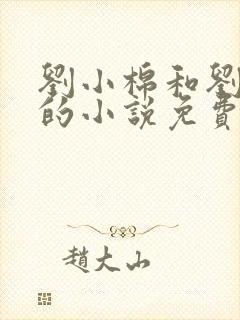 劉小棉和劉
的小說免費
趙大山